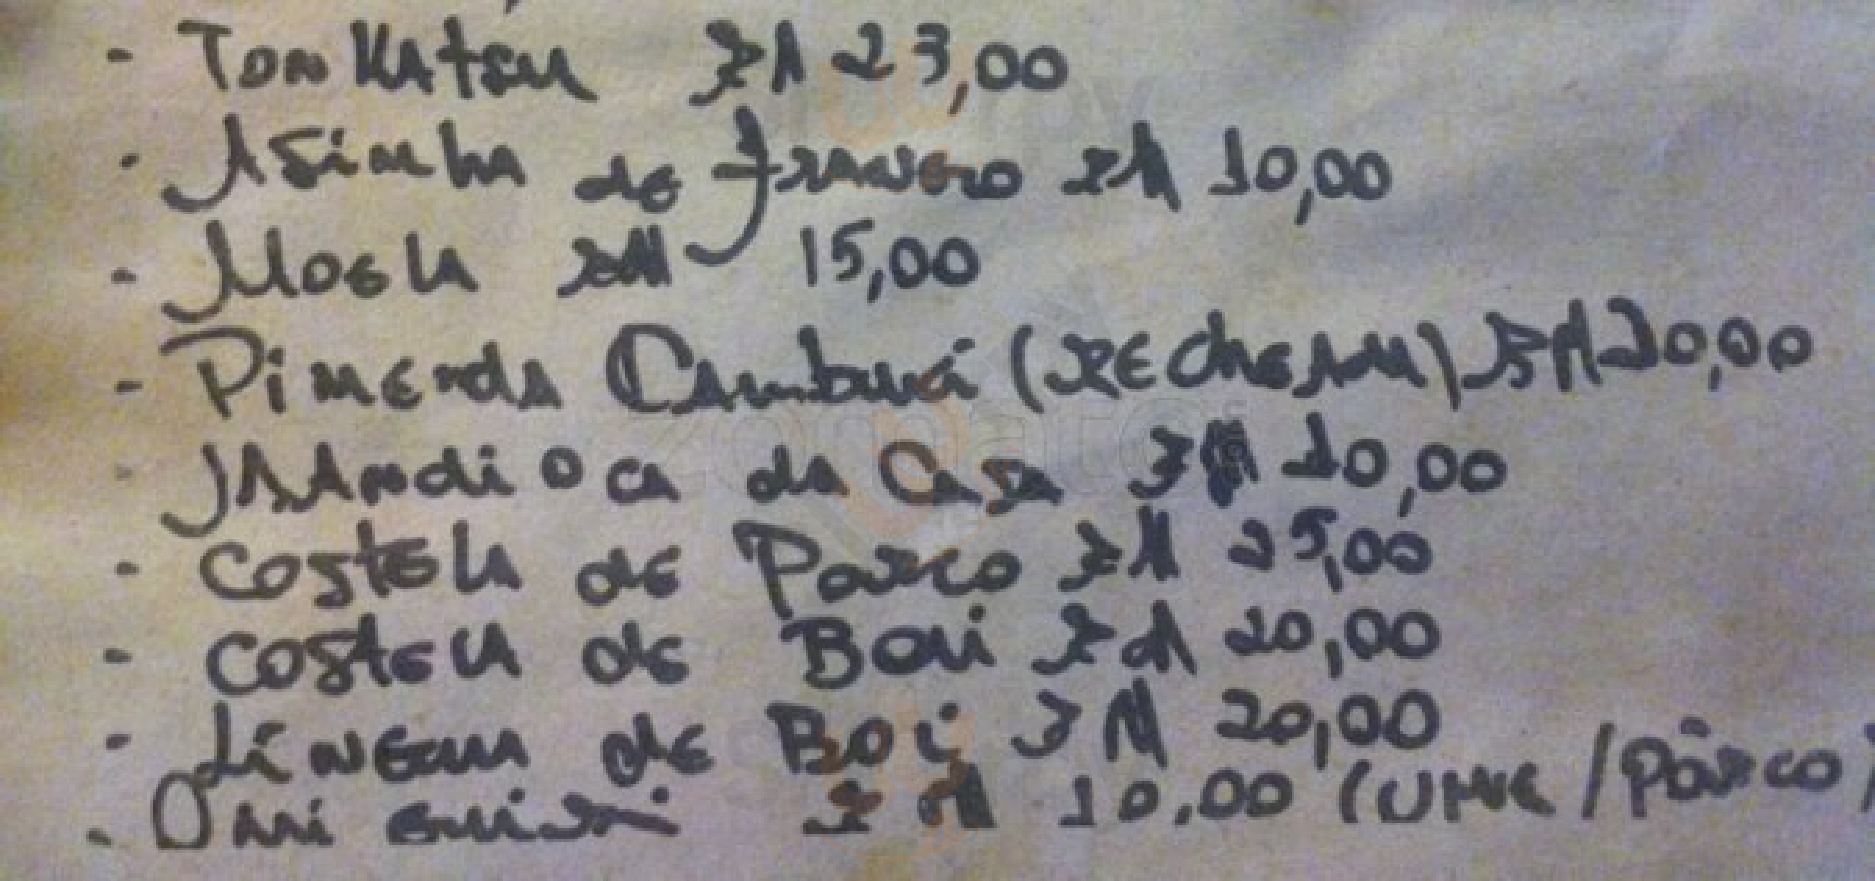 - Tonkatsu R$ 23,00
- Asinha de frango R$ 10,00
- Moela R$ 15,00
- Pimenta Cambuci (Recheada) R$ 20,00
- Mandioca da Casa R$ 10,00
- Costela de Porco R$ 25,00
- Costela de Boi R$ 20,00
- Língua de Boi R$ 20,00
- Oniguiri R$ 10,00 (UME / Porco)
zomato